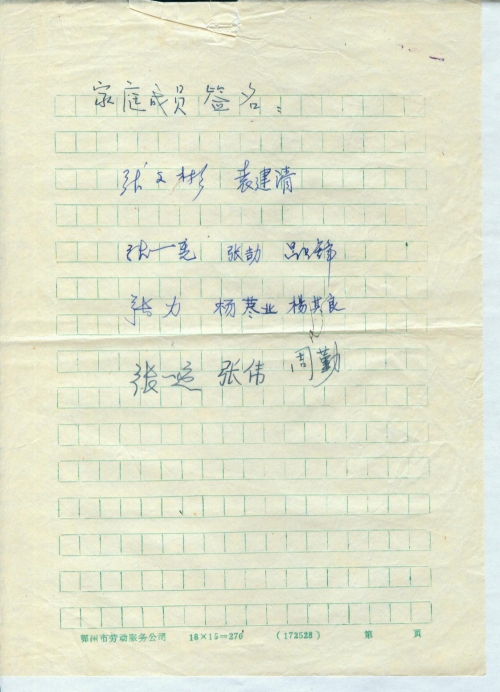 家庭成员签名：
张文彬 袁建清
张一亮 张勍
张力 杨慕业 楊其良
张一运 张伟 周勤
鄂州市劳动服务公司 18×15=270 (172528) 第 页